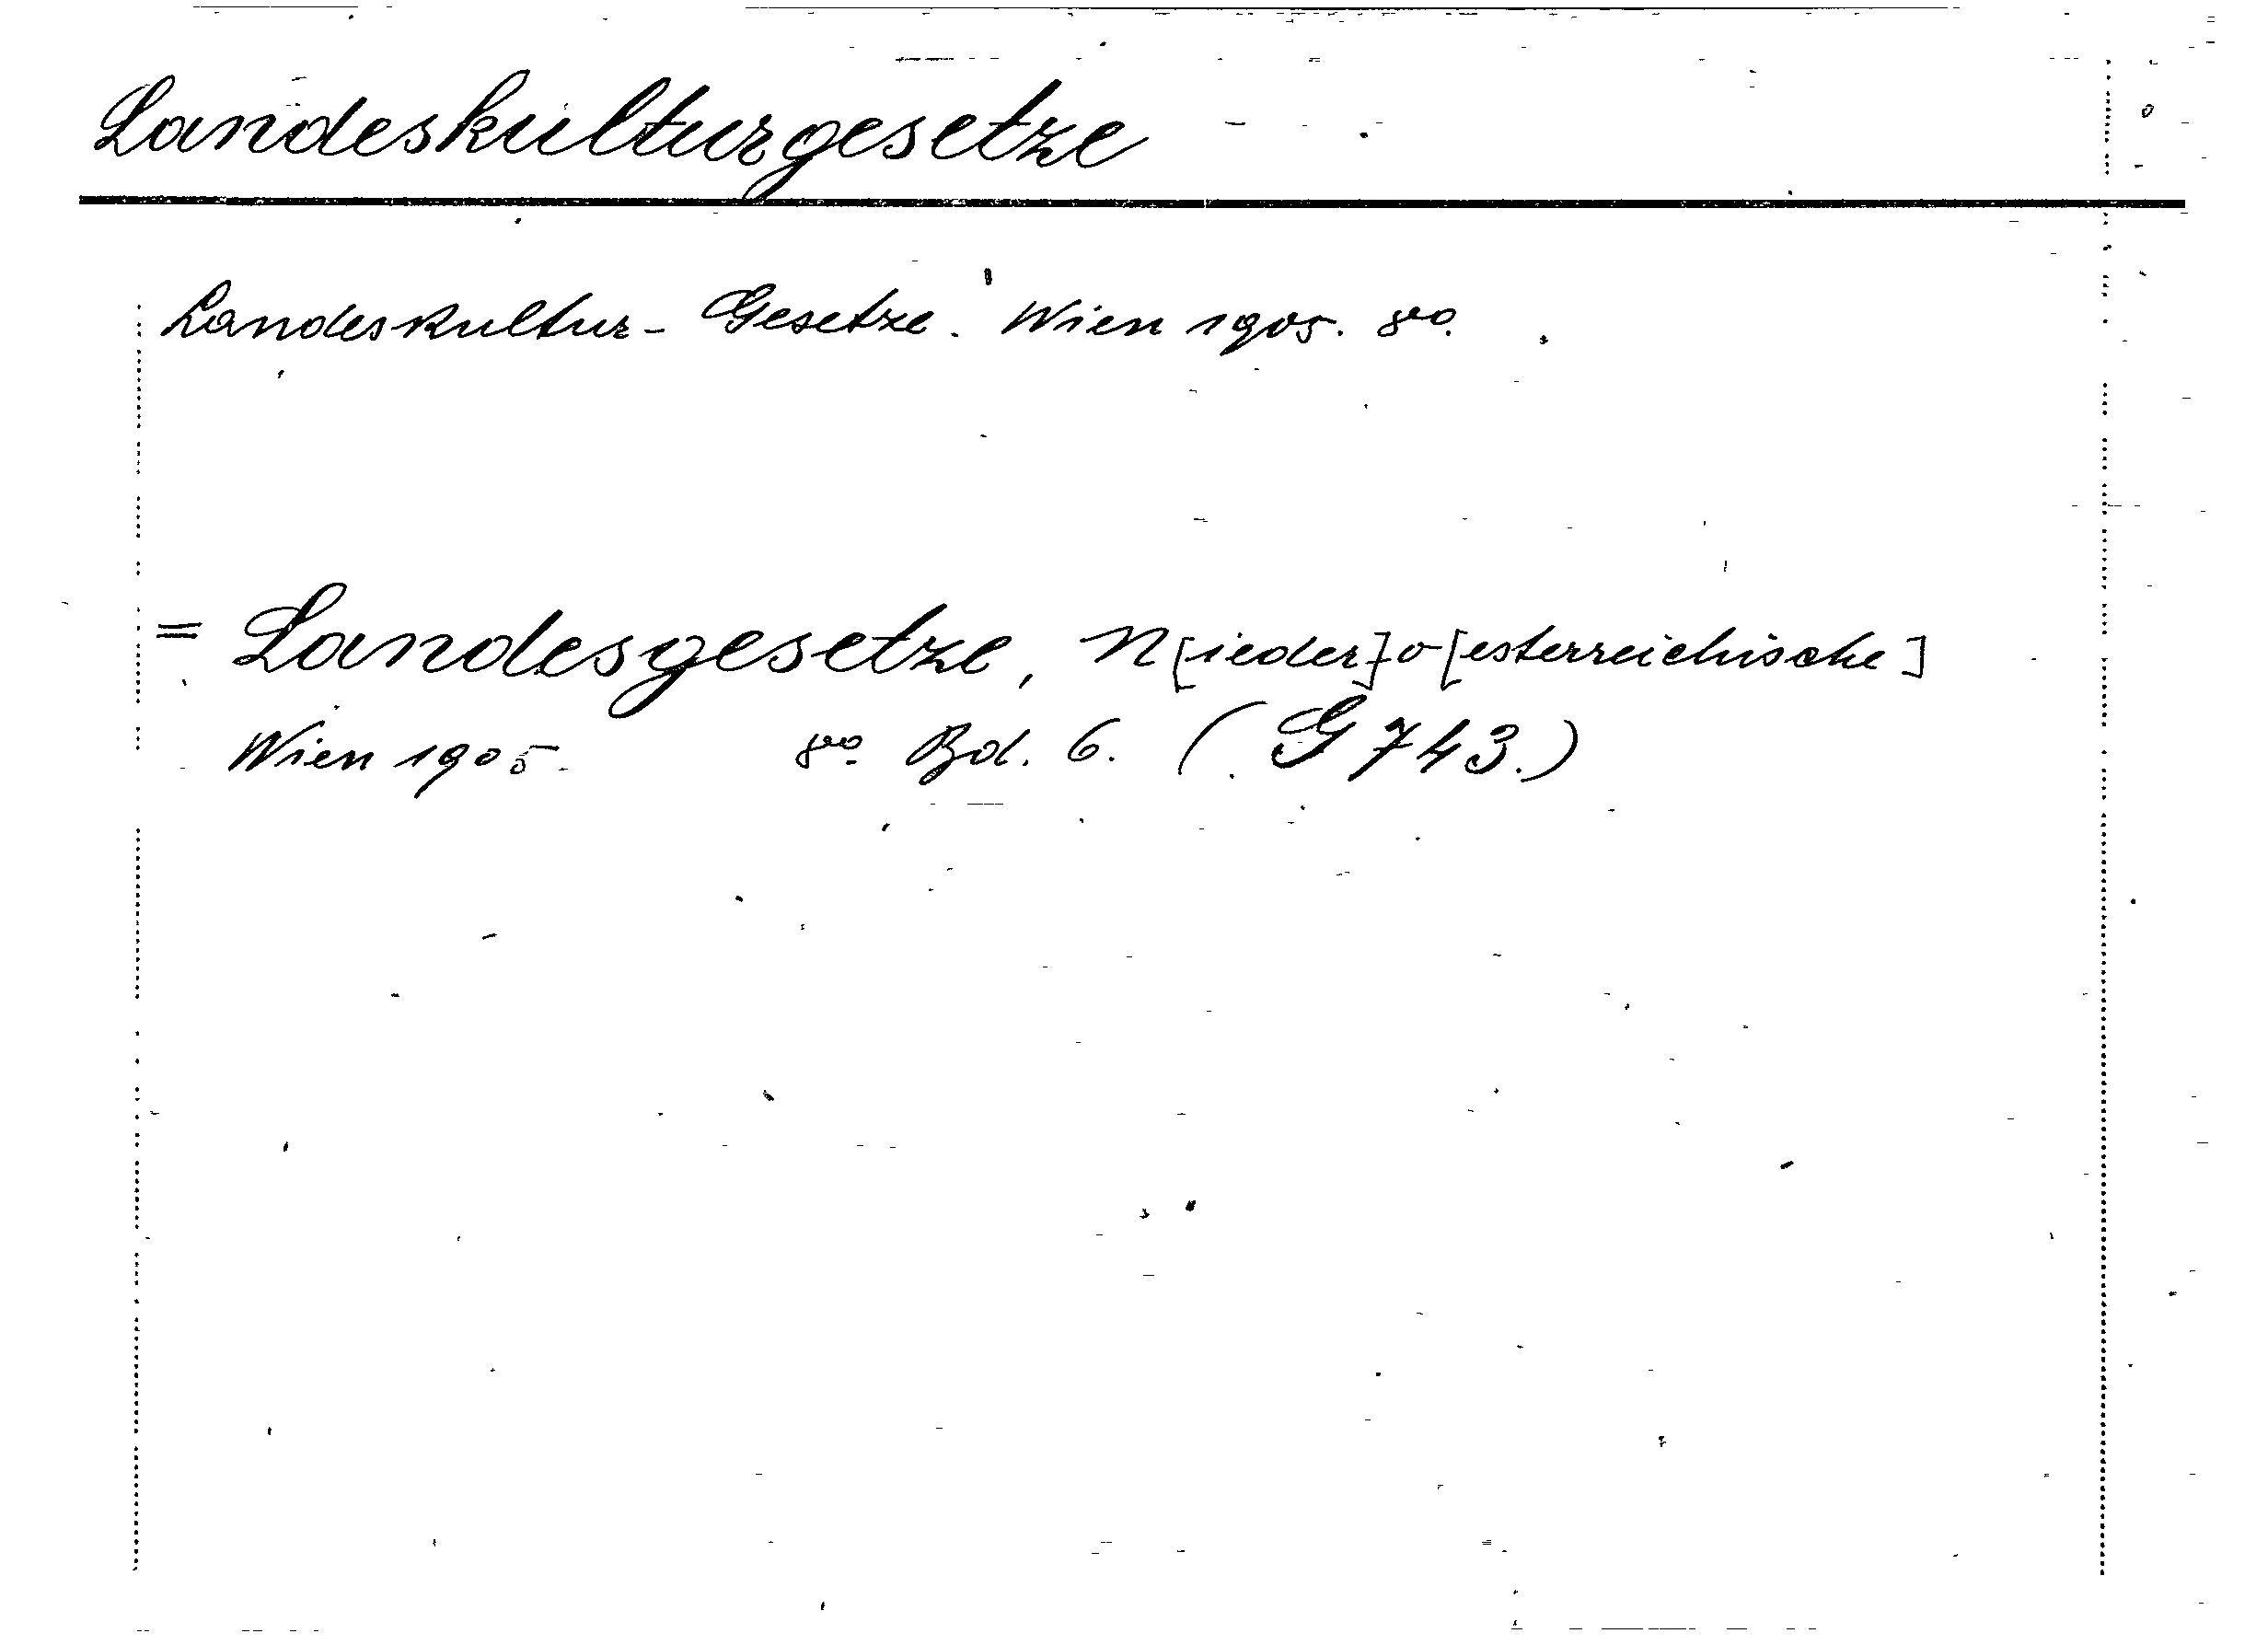 Landeskulturgesetze
Landeskultur-Gesetze. Wien 1905. 8vo.
= Landesgesetze, N[ieder]o[esterreichische]
Wien 1905. 8vo. Bd. 6. (G 743.)